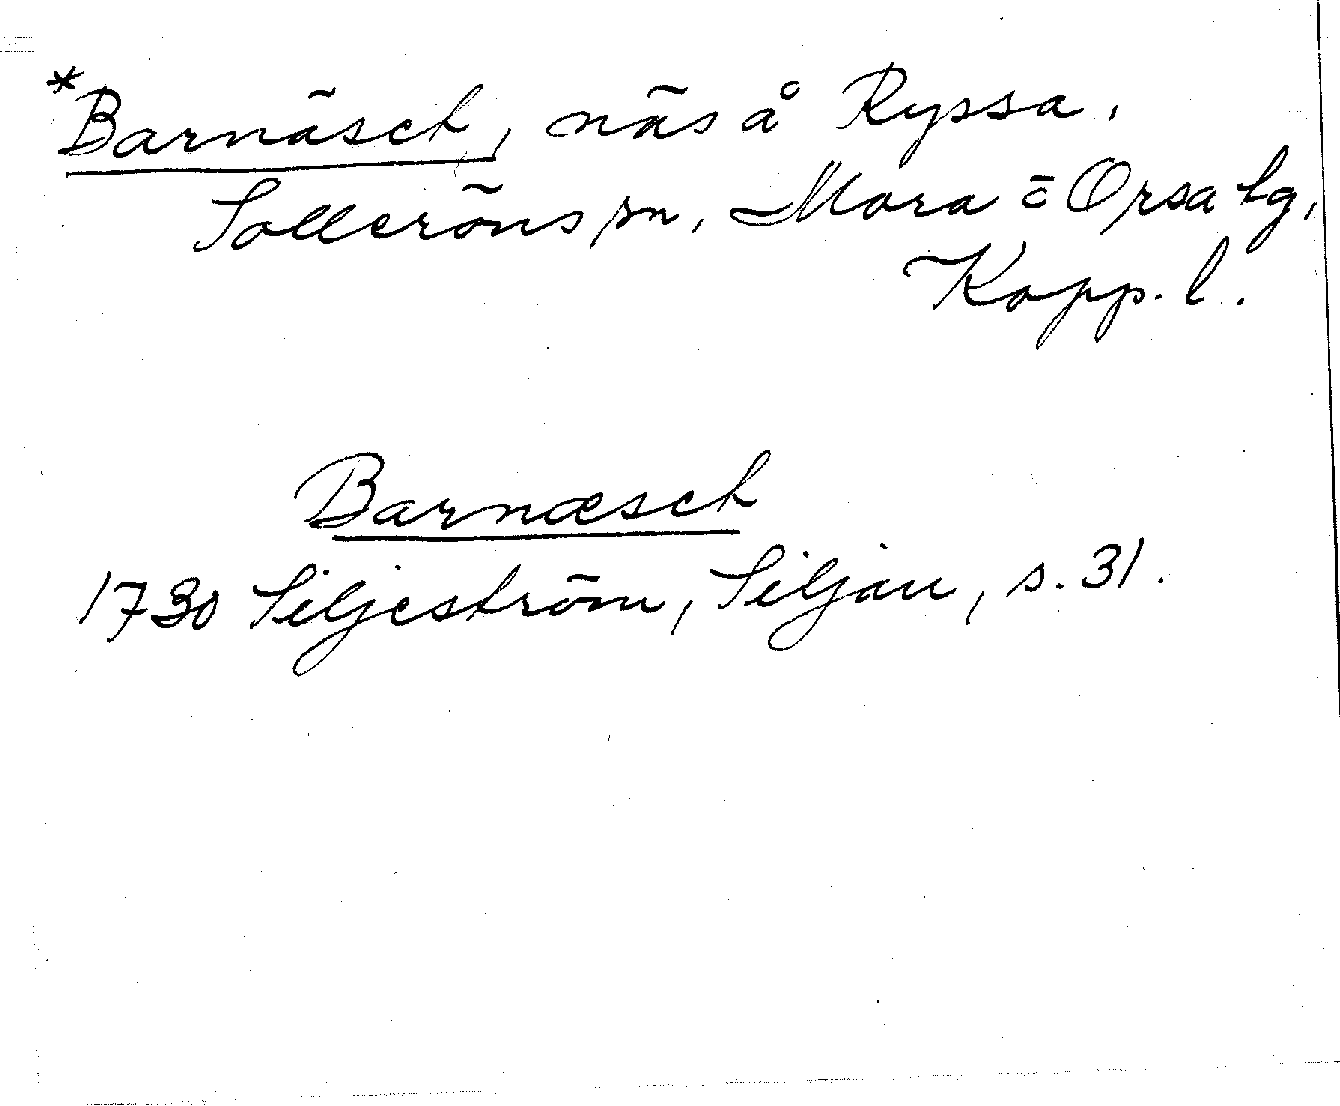 *Barnäsch, näs å Ryssa,
Solleröns sn, Mora o Orsa tg,
Kopp. l.
Barnæsch
1730 Siljeström, Siljan, s. 31.